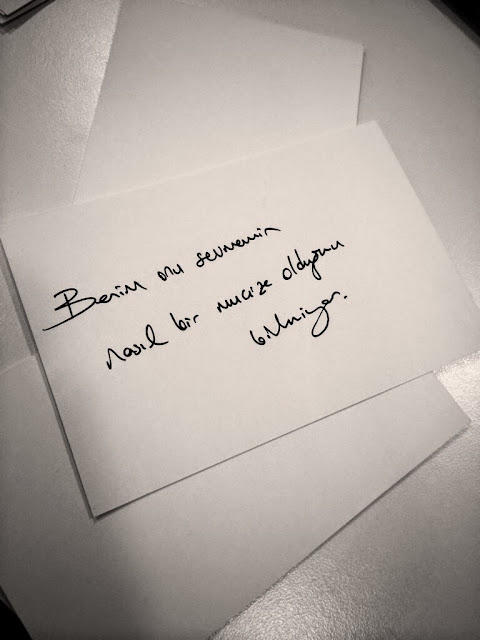 Benim onu sevmemin
nasıl bir mucize olduğunu
bilmiyor.